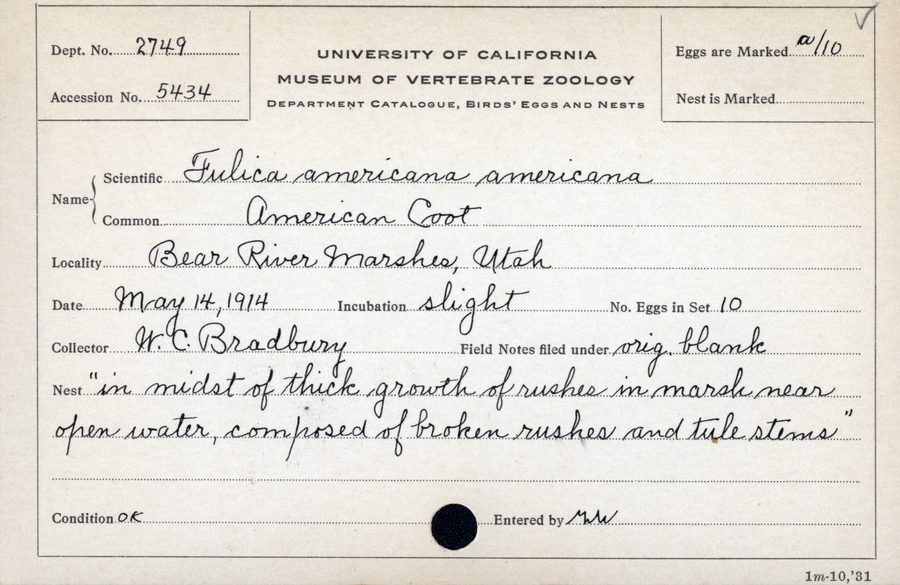 Dept. No. 2749
Accession No. 5434
UNIVERSITY OF CALIFORNIA
MUSEUM OF VERTEBRATE ZOOLOGY
DEPARTMENT CATALOGUE, BIRDS' EGGS AND NESTS
Eggs are Marked a/10
Nest is Marked
Name
Scientific Fulica americana americana
Common American Coot
Locality Bear River Marshes, Utah
Date May 14, 1914 Incubation slight No. Eggs in Set 10
Collector W. C. Bradbury Field Notes filed under orig. blank
Nest "in midst of thick growth of rushes in marsh near
open water, composed of broken rushes and tule stems"
Condition OK Entered by
1m-10,'31